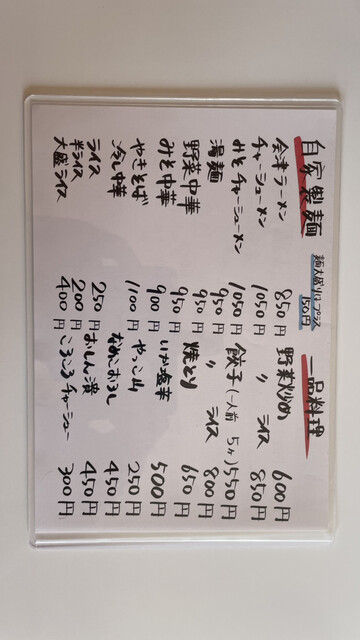 自家製麺
麺大盛りはプラス
150円
会津ラーメン 850円
チャーシューメン 1050円
みそチャーシューメン 1050円
湯麺 950円
野菜中華 950円
みそ中華 950円
やきそば 900円
冷し中華 1100円
ライス 250円
半ライス 200円
大盛ライス 400円
一品料理
野菜炒め 600円
〃 ライス 850円
餃子(一人前 5ヶ) 550円
〃 ライス 800円
焼とり 650円
いか塩辛 500円
やっこ 250円
なめこおろし 450円
おしん漬 450円
ころころチャーシュー 300円